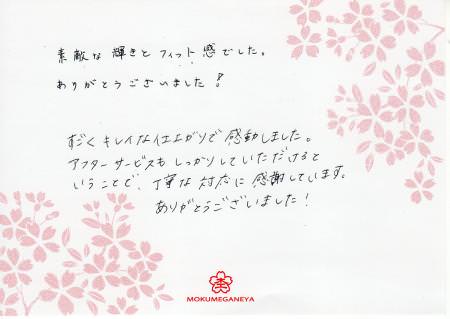 素敵な輝きとフィット感でした。
ありがとうございました！
すごくキレイな仕上がりで感動しました。
アフターサービスもしっかりしていただけると
いうことで、丁寧な対応に感謝しています。
ありがとうございました！
MOKUMEGANEYA